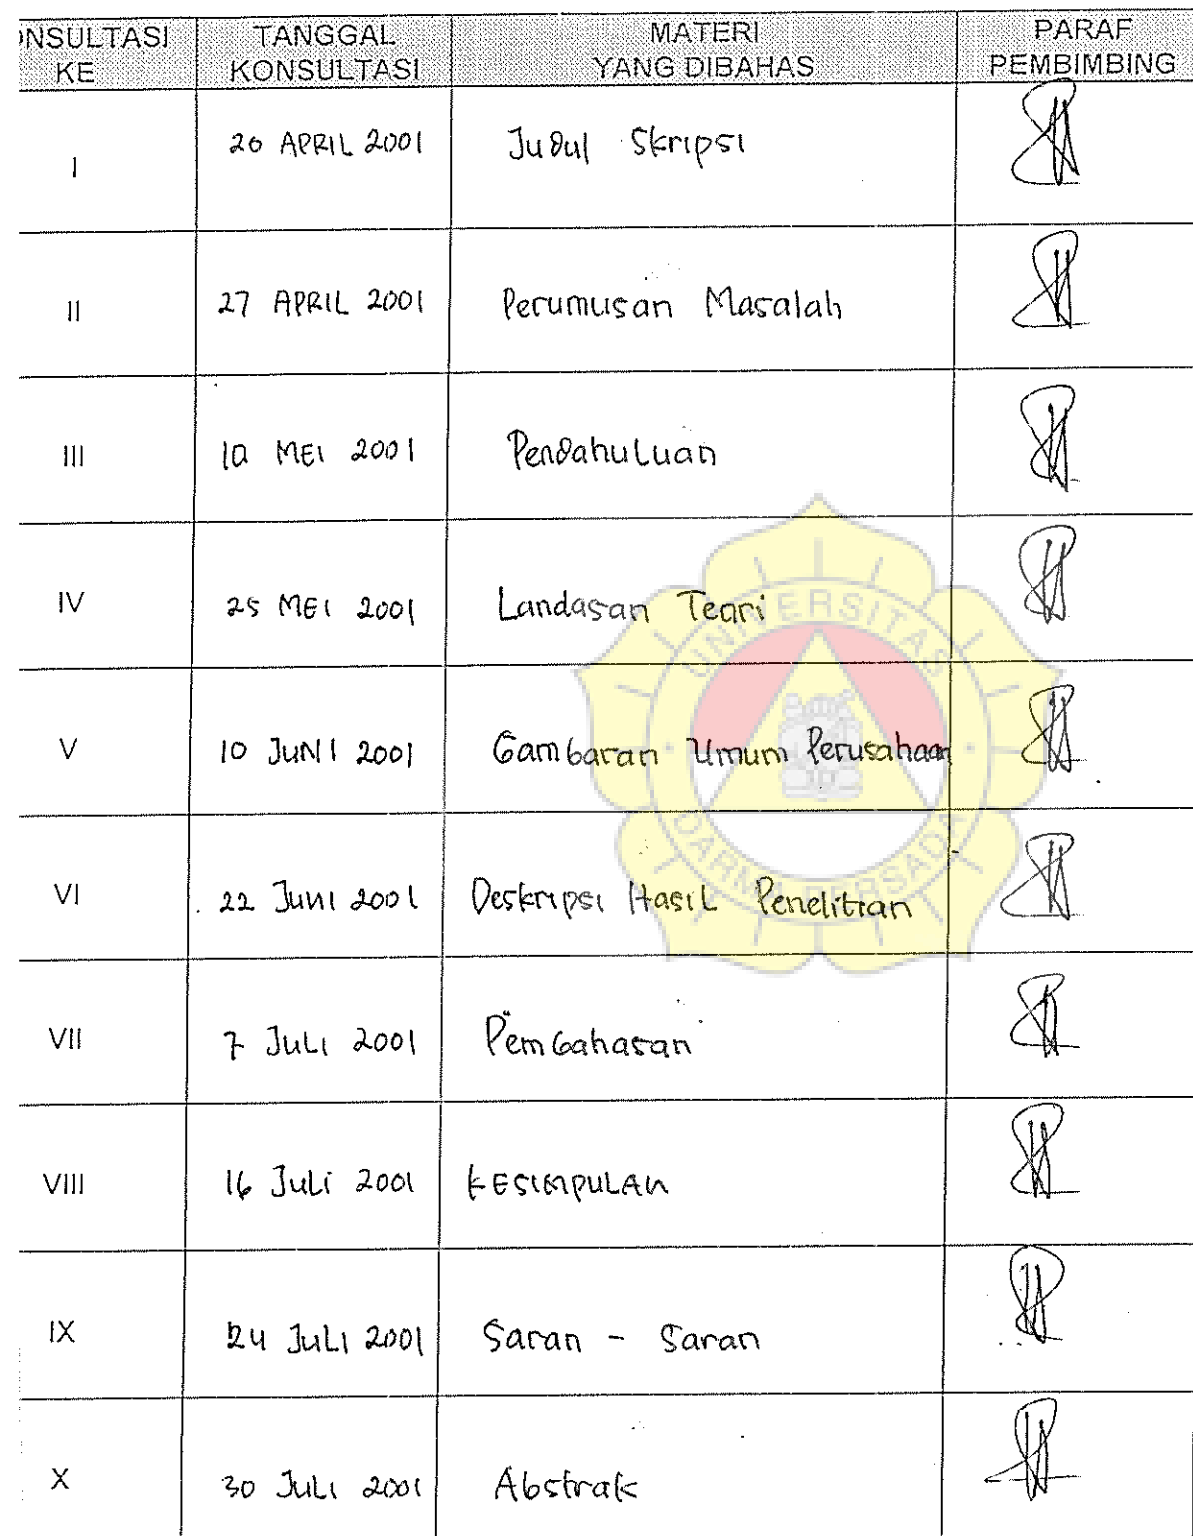 ONSULTASI KE | TANGGAL KONSULTASI | MATERI YANG DIBAHAS | PARAF PEMBIMBING
I | 20 APRIL 2001 | Judul Skripsi
II | 27 APRIL 2001 | Perumusan Masalah
III | 10 MEI 2001 | Pendahuluan
IV | 25 MEI 2001 | Landasan Teori
V | 10 JUNI 2001 | Gambaran Umum Perusahaan
VI | 22 Juni 2001 | Deskripsi Hasil Penelitian
VII | 7 Juli 2001 | Pembahasan
VIII | 16 Juli 2001 | KESIMPULAN
IX | 24 Juli 2001 | Saran - Saran
X | 30 Juli 2001 | Abstrak
UNIVERSITAS
DARMA PERSADA